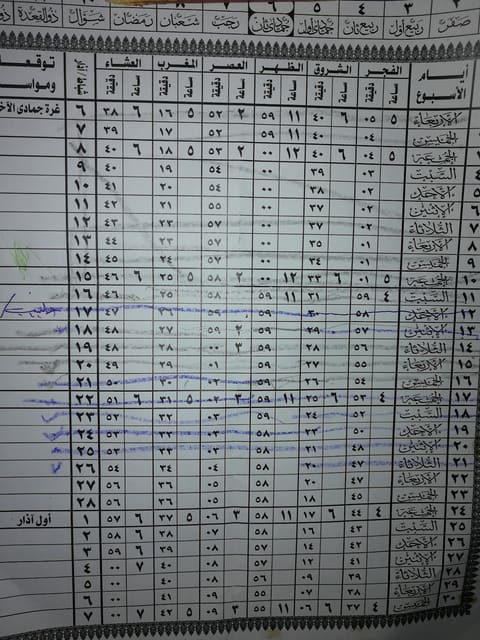 صفر ربيع أول ربيع ثان جمادى أولى جمادى ثان رجب شعبان رمضان شوال ذو القعدة
٢ ٣ ٤ ٥ ٦ ٧ ٨ ٩ ١٠
أيام الأسبوع الفجر الشروق الظهر العصر المغرب العشاء شباط / آذار
ساعة دقيقة ساعة دقيقة ساعة دقيقة ساعة دقيقة ساعة دقيقة ساعة دقيقة
الأربعاء ٥ ٠٥ ٦ ٤٠ ١١ ٥٩ ٢ ٥٢ ٥ ١٦ ٦ ٣٨ ٦ غرة جمادى الآخ
الخميس ٠٤ ٤٠ ٥٩ ٥٢ ١٧ ٣٩ ٧
الجمعة ٥ ٠٤ ٦ ٤٠ ١٢ ٠٠ ٢ ٥٣ ٥ ١٨ ٦ ٤٠ ٨
4 السبت ٠٣ ٣٩ ٠٠ ٥٤ ١٩ ٤٠ ٩
5 الأحد ٠٢ ٣٨ ٠٠ ٥٤ ٢٠ ٤١ ١٠
6 الاثنين ٠٢ ٣٧ ٠٠ ٥٥ ٢١ ٤٢ ١١
7 الثلاثاء ٠٢ ٣٧ ٠٠ ٥٧ ٢٣ ٤٣ ١٢
8 الأربعاء ٠١ ٣٥ ٠٠ ٥٧ ٢٣ ٤٤ ١٣
9 الخميس ٠١ ٣٤ ٠٠ ٥٧ ٢٤ ٤٥ ١٤
10 الجمعة ٥ ٠١ ٦ ٣٣ ١٢ ٠٠ ٢ ٥٨ ٥ ٢٥ ٦ ٤٦ ١٥
11 السبت ٤ ٥٩ ٣١ ١١ ٥٩ ٥٨ ٢٥ ٤٦ ١٦
12 الأحد ٥٨ ٣٠ ٥٩ ٥٩ ٢٦ ٤٧ ١٧
13 الاثنين ٥٧ ٢٩ ٥٩ ٢ ٥٩ ٢٧ ٤٨ ١٨
14 الثلاثاء ٥٦ ٢٨ ٥٩ ٣ ٠٠ ٢٨ ٤٨ ١٩
15 الأربعاء ٥٥ ٢٧ ٥٩ ٠١ ٢٩ ٤٩ ٢٠
16 الخميس ٥٤ ٢٦ ٥٩ ٠٢ ٣٠ ٥٠ ٢١
17 الجمعة ٤ ٥٣ ٦ ٢٥ ١١ ٥٩ ٣ ٠٢ ٥ ٣١ ٦ ٥١ ٢٢
18 السبت ٥٢ ٢٤ ٥٩ ٠٣ ٣٢ ٥٢ ٢٣
19 الأحد ٥٠ ٢٢ ٥٨ ٠٣ ٣٢ ٥٢ ٢٤
20 الاثنين ٤٨ ٢١ ٥٨ ٠٣ ٣٣ ٥٣ ٢٥
21 الثلاثاء ٤٧ ٢٠ ٥٨ ٠٤ ٣٤ ٥٤ ٢٦
22 الأربعاء ٤٧ ٢٠ ٥٨ ٠٥ ٣٦ ٥٦ ٢٧
23 الخميس ٤٥ ١٨ ٥٨ ٠٥ ٣٦ ٥٦ ٢٨
24 الجمعة ٤ ٤٤ ٦ ١٧ ١١ ٥٨ ٣ ٠٦ ٥ ٣٧ ٦ ٥٧ ١ أول آذار
25 السبت ٤٣ ١٦ ٥٨ ٠٧ ٣٨ ٦ ٥٨ ٢
26 الأحد ٤٢ ١٤ ٥٧ ٠٨ ٣٩ ٦ ٥٩ ٣
27 الاثنين ٤١ ١٢ ٥٧ ٠٨ ٤٠ ٧ ٠٠ ٤
28 الثلاثاء ٣٩ ٠٩ ٥٦ ٠٨ ٤٠ ٠٠ ٥
29 الأربعاء ٣٩ ٠٩ ٥٥ ٠٩ ٤١ ٠٠ ٦
30 الخميس ٤ ٣٧ ٦ ٠٦ ١١ ٥٥ ٣ ٠٩ ٥ ٤٢ ٧ ٠٠ ٧